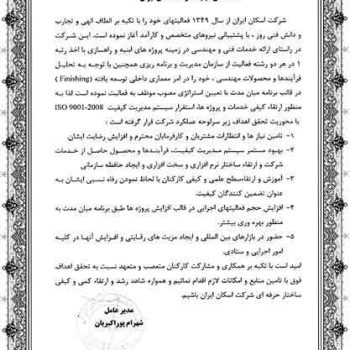 شرکت اسکان ایران از سال ۱۳۴۹ فعالیتهای خود را با تکیه بر الطاف الهی و تجارب
و دانش فنی روز ، با پشتیبانی نیروهای متخصص و کارآمد آغاز نموده است. این شرکت
در راستای ارائه خدمات فنی و مهندسی در زمینه پروژه های ابنیه و راهسازی با اخذ رتبه
در هر دو رشته فعالیت از سازمان مدیریت و برنامه ریزی همچنین با توجه به تحلیل
فرآیندها و محصولات مهندسی ، خود را در امر معماری داخلی توسعه یافته ( Finishing )
در قالب برنامه میان مدت با تعیین استراتژی مصوب موظف به فعالیت نموده است لذا به
منظور ارتقاء کیفی خدمات و پروژه ها، استقرار سیستم مدیریت کیفیت ISO 9001-2008
با محوریت تحقق اهداف زیر سرلوحه عملکرد شرکت قرار گرفته است :
۱- تامین نیاز ها و انتظارات مشتریان و کارفرمایان محترم و افزایش رضایت ایشان.
۲- بهبود مستمر سیستم مدیریت کیفیت، فرآیندها و محصول حاصل از خدمات
شرکت و ارتقاء ساختار نرم افزاری و سخت افزاری و ایجاد حافظه سازمانی
۳- آموزش و ارتقاءسطح علمی و کیفی کارکنان با لحاظ نمودن رفاه نسبی ایشان به
عنوان تضمین کنندگان کیفیت.
۴- افزایش حجم فعالیتهای اجرایی در قالب افزایش پروژه ها طبق برنامه میان مدت به
منظور بهره وری بیشتر.
۵- حضور در بازارهای بین المللی و ایجاد مزیت های رقابتی و افزایش آنها در کلیه
امور اجرایی و ستادی.
امید است با تکیه بر همکاری و مشارکت کارکنان متعصب و متعهد نسبت به تحقق اهداف
فوق با تامین منابع و امکانات لازم اقدام نمائیم و همواره شاهد رشد و ارتقاء کمی و کیفی
ساختار حرفه ای شرکت اسکان ایران باشیم.
مدیر عامل
شهرام پوراکبریان